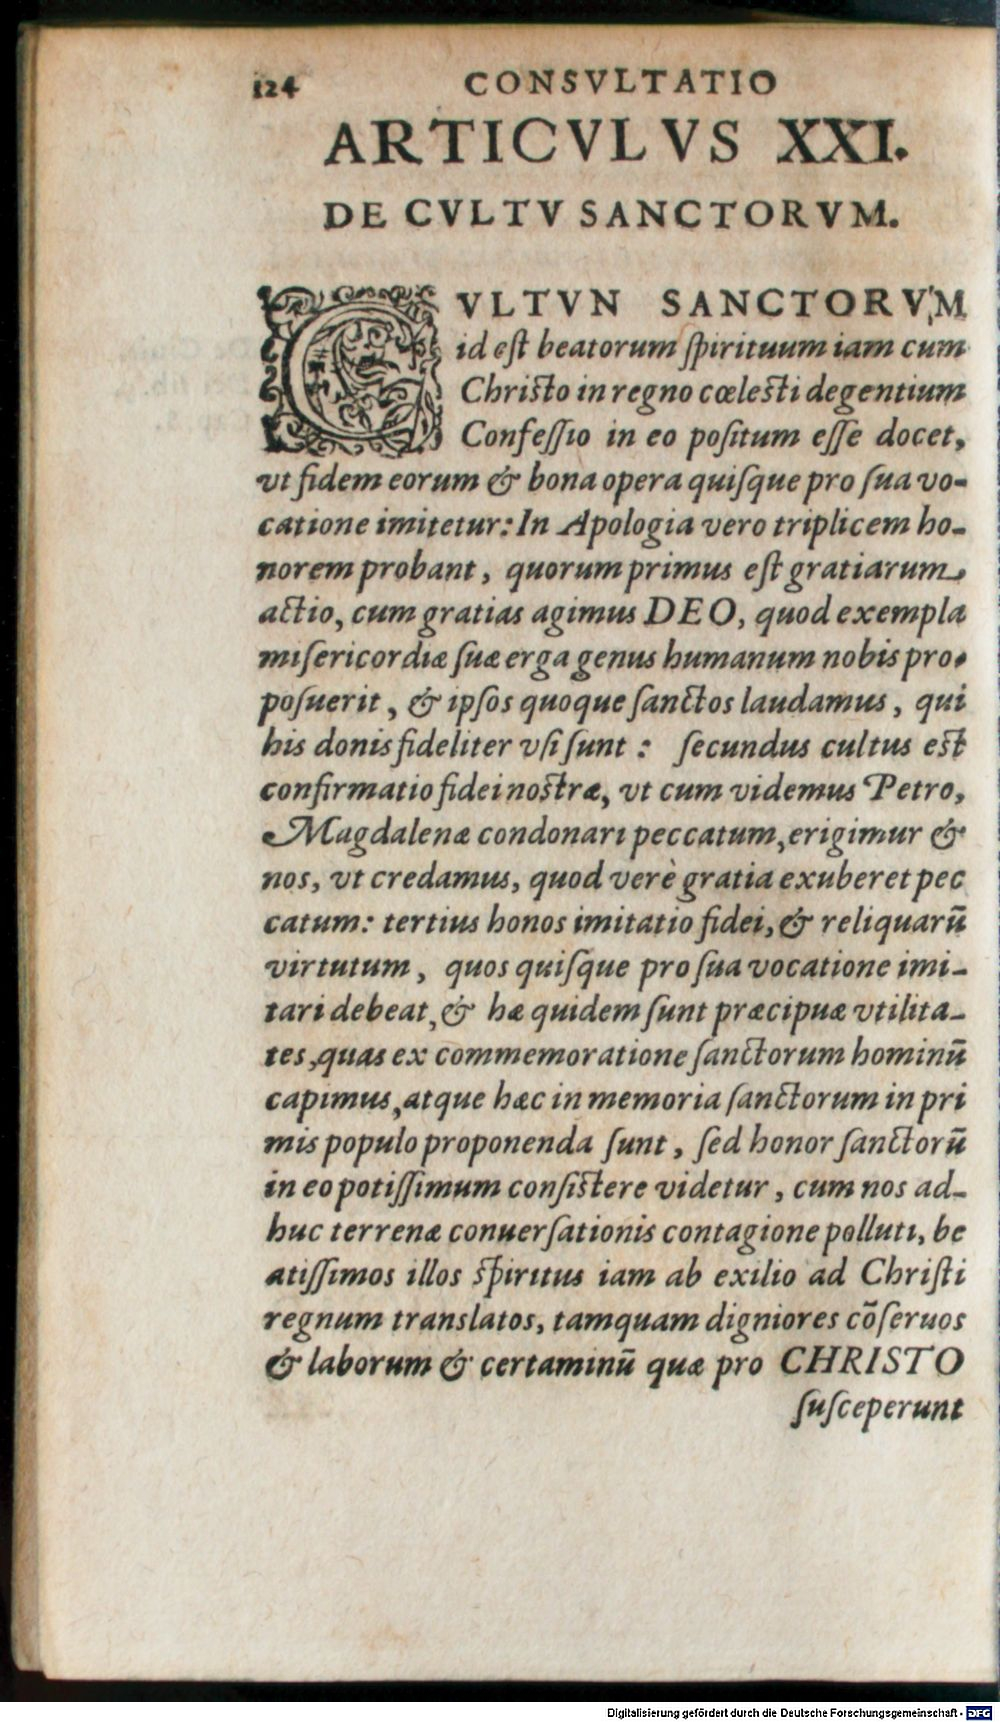 124 CONSVLTATIO
ARTICVLVS XXI.
DE CVLTV SANCTORVM.
CVLTVN SANCTORVM
id eſt beatorum ſpirituum iam cum
Chriſto in regno cœleſti degentium
Confeſſio in eo poſitum eſſe docet,
vt fidem eorum & bona opera quiſque pro ſua vo-
catione imitetur: In Apologia vero triplicem ho-
norem probant, quorum primus eſt gratiarum
actio, cum gratias agimus DEO, quod exempla
miſericordiæ ſuæ erga genus humanum nobis pro-
poſuerit, & ipſos quoque ſanctos laudamus, qui
his donis fideliter vſi ſunt: ſecundus cultus eſt
confirmatio fidei noſtræ, vt cum videmus Petro,
Magdalenæ condonari peccatum, erigimur &
nos, vt credamus, quod verè gratia exuberet pec
catum: tertius honos imitatio fidei, & reliquarū
virtutum, quos quiſque pro ſua vocatione imi-
tari debeat, & hæ quidem ſunt præcipuæ vtilita-
tes, quas ex commemoratione ſanctorum hominū
capimus, atque hæc in memoria ſanctorum in pri
mis populo proponenda ſunt, ſed honor ſanctorū
in eo potiſſimum conſiſtere videtur, cum nos ad-
huc terrenæ conuerſationis contagione polluti, be
atiſſimos illos ſpiritus iam ab exilio ad Chriſti
regnum translatos, tamquam digniores cōſeruos
& laborum & certaminū quæ pro CHRISTO
ſuſceperunt
Digitalisierung gefördert durch die Deutsche Forschungsgemeinschaft - DFG